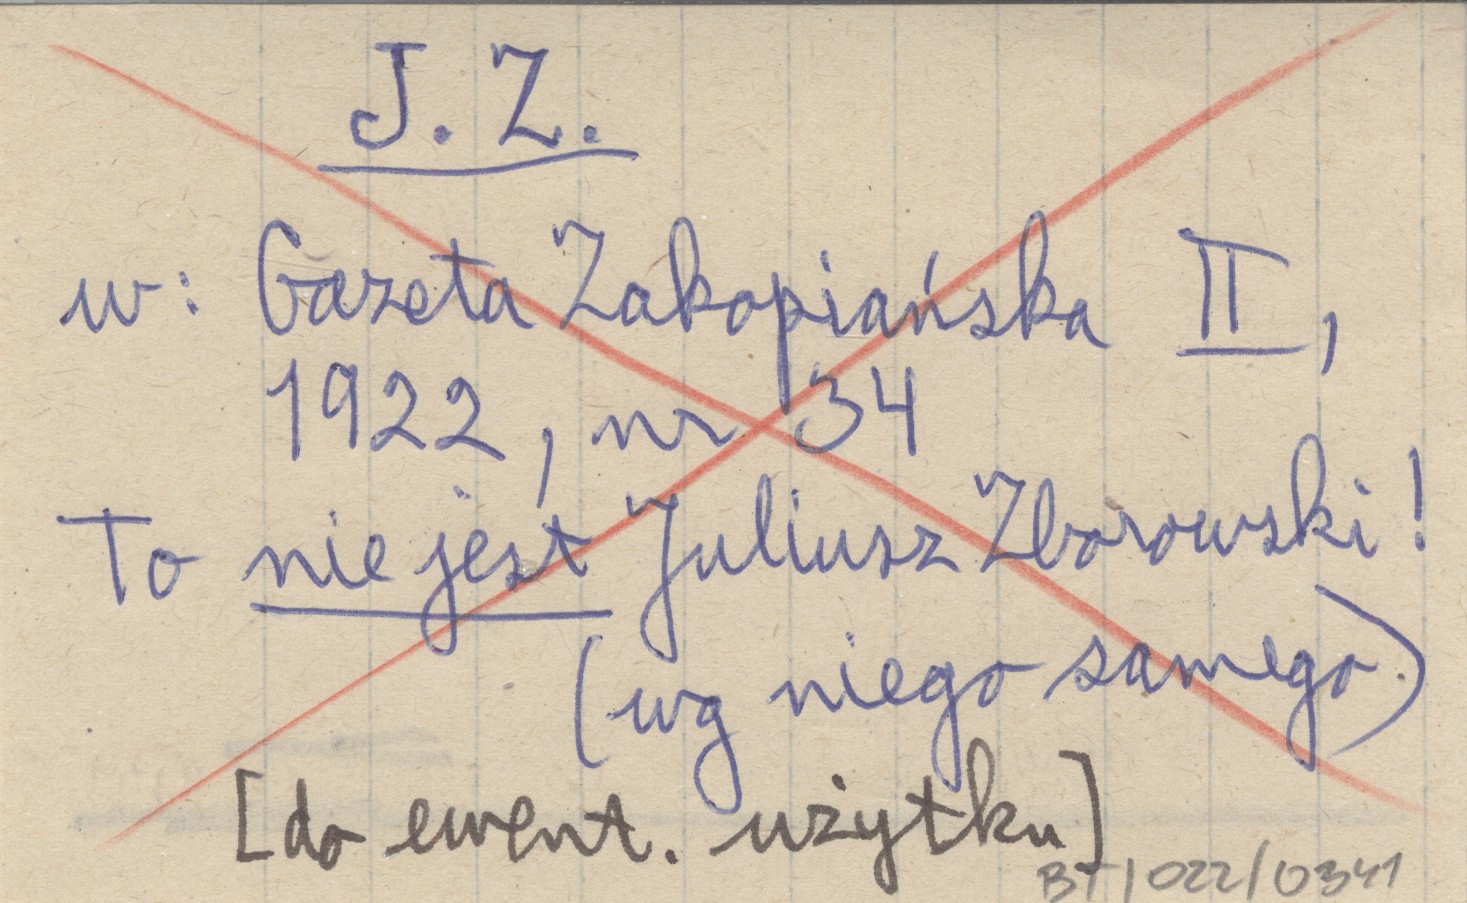 J. Z.
w: Gazeta Zakopiańska II,
1922, nr 34
To nie jest Juliusz Zborowski!
(wg niego samego)
[do ewent. użytku]
BT/022/0341